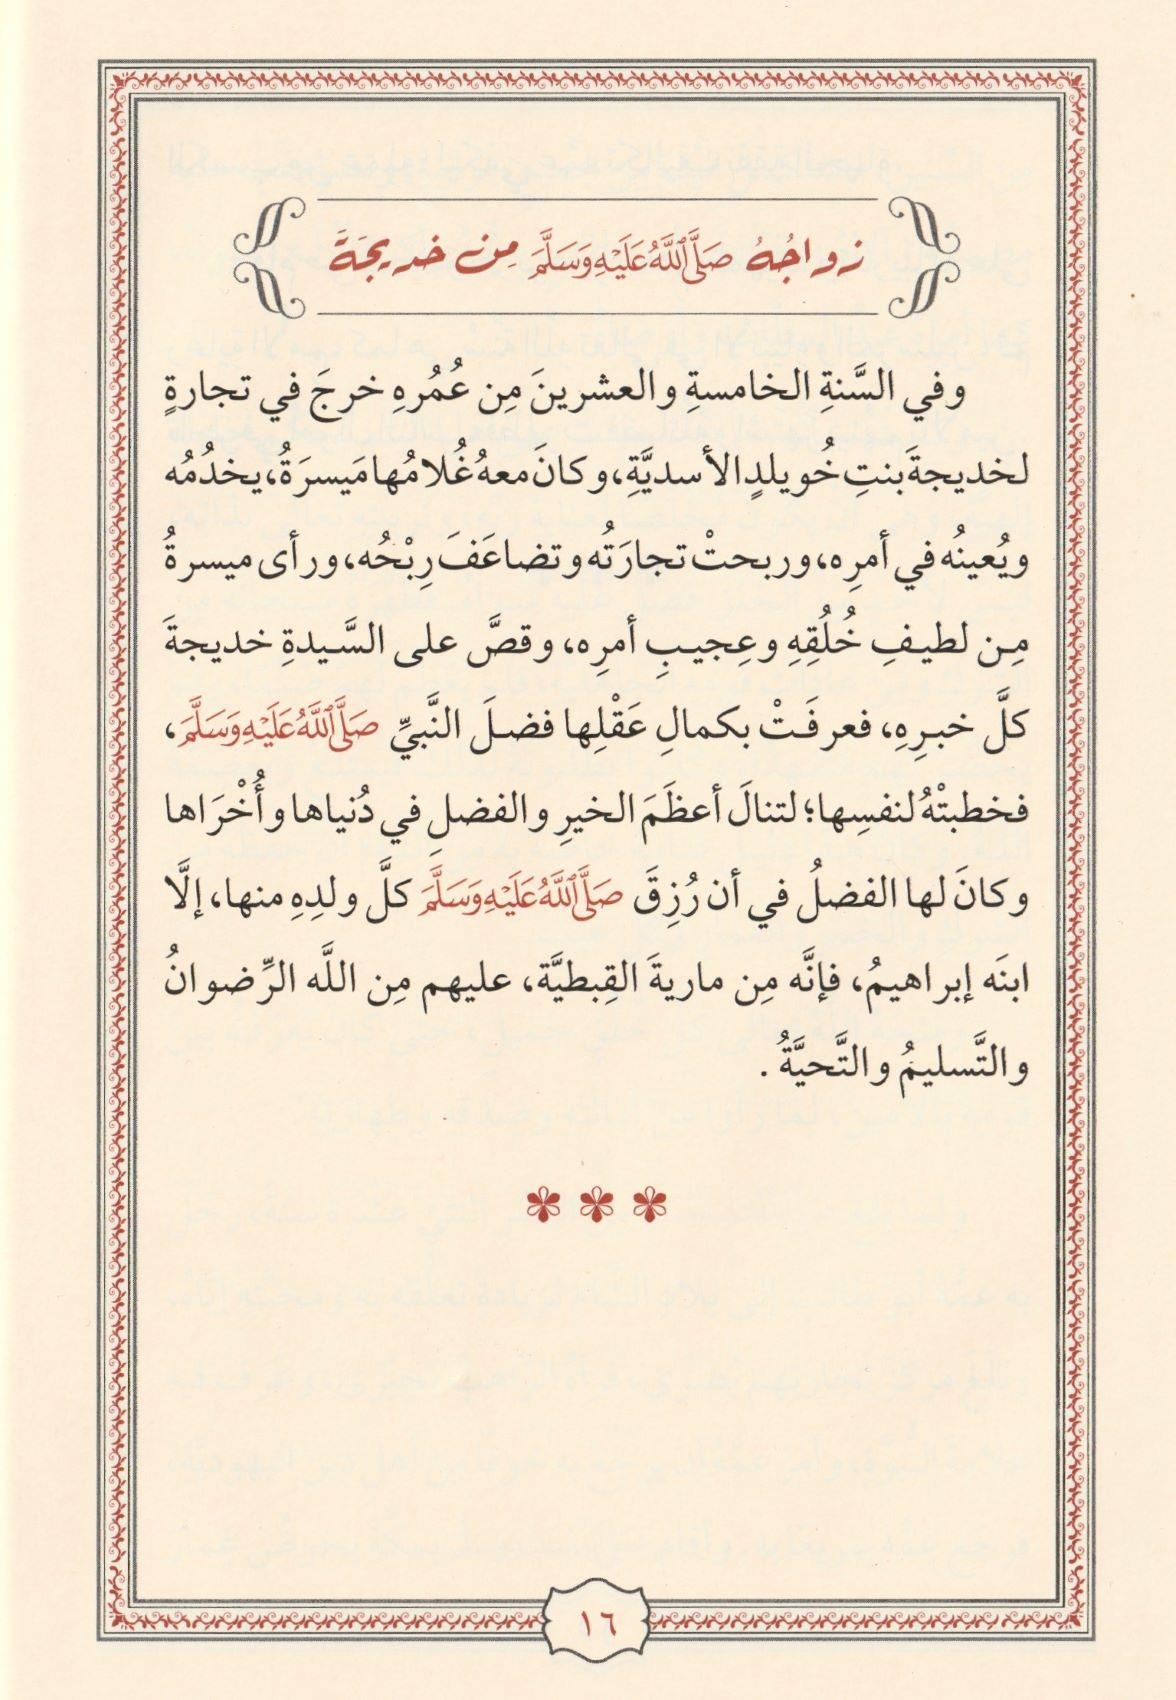 زواجُهُ صَلَّى اللَّهُ عَلَيْهِ وَسَلَّمَ مِن خديجَةَ
وفي السَّنةِ الخامسةِ والعشرينَ مِن عُمُرِهِ خرجَ في تجارةٍ
لخديجةَ بنتِ خُويلدٍ الأسديَّةِ، وكانَ معهُ غُلامُها مَيسرَةُ، يخدُمُه
ويُعينُه في أمرِه، وربحتْ تجارَتُه وتضاعَفَ رِبْحُه، ورأى ميسرةُ
مِن لطيفِ خُلُقِهِ وعِجيبِ أمرِه، وقصَّ على السَّيدةِ خديجةَ
كلَّ خبرِهِ، فعرفَتْ بكمالِ عَقْلِها فضلَ النَّبيِّ صَلَّى اللَّهُ عَلَيْهِ وَسَلَّمَ،
فخطبتْهُ لنفسِها؛ لتنالَ أعظَمَ الخيرِ والفضلِ في دُنياها وأُخْرَاها
وكانَ لها الفضلُ في أن رُزِقَ صَلَّى اللَّهُ عَلَيْهِ وَسَلَّمَ كلَّ ولدِهِ منها، إلَّا
ابنَه إبراهيمُ، فإنَّه مِن ماريةَ القِبطيَّة، عليهم مِن اللَّه الرِّضوانُ
والتَّسليمُ والتَّحيَّةُ .
١٦